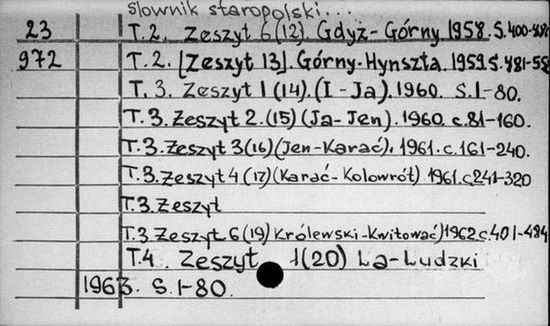 słownik staropolski...
23 T.2. Zeszyt 6(12). Gdyż-Górny. 1958. S.400-480
972 T.2. [Zeszyt 13]. Górny-Hynszta. 1959. S.481-55
T. 3. Zeszyt 1(14). (I-Ja). 1960. S.1-80.
T.3. Zeszyt 2.(15) (Ja-Jen). 1960. c.81-160.
T.3. Zeszyt 3(16) (Jen-Karać). 1961. c.161-240.
T.3. Zeszyt 4(17) (Karać-Kolowrót) 1961. c241-320
T.3. Zeszyt
T.3. Zeszyt 6(19) Królewski-Kwitować) 1962 c.401-484
T.4. Zeszyt 1(20) La-Ludzki
1963. S.1-80.